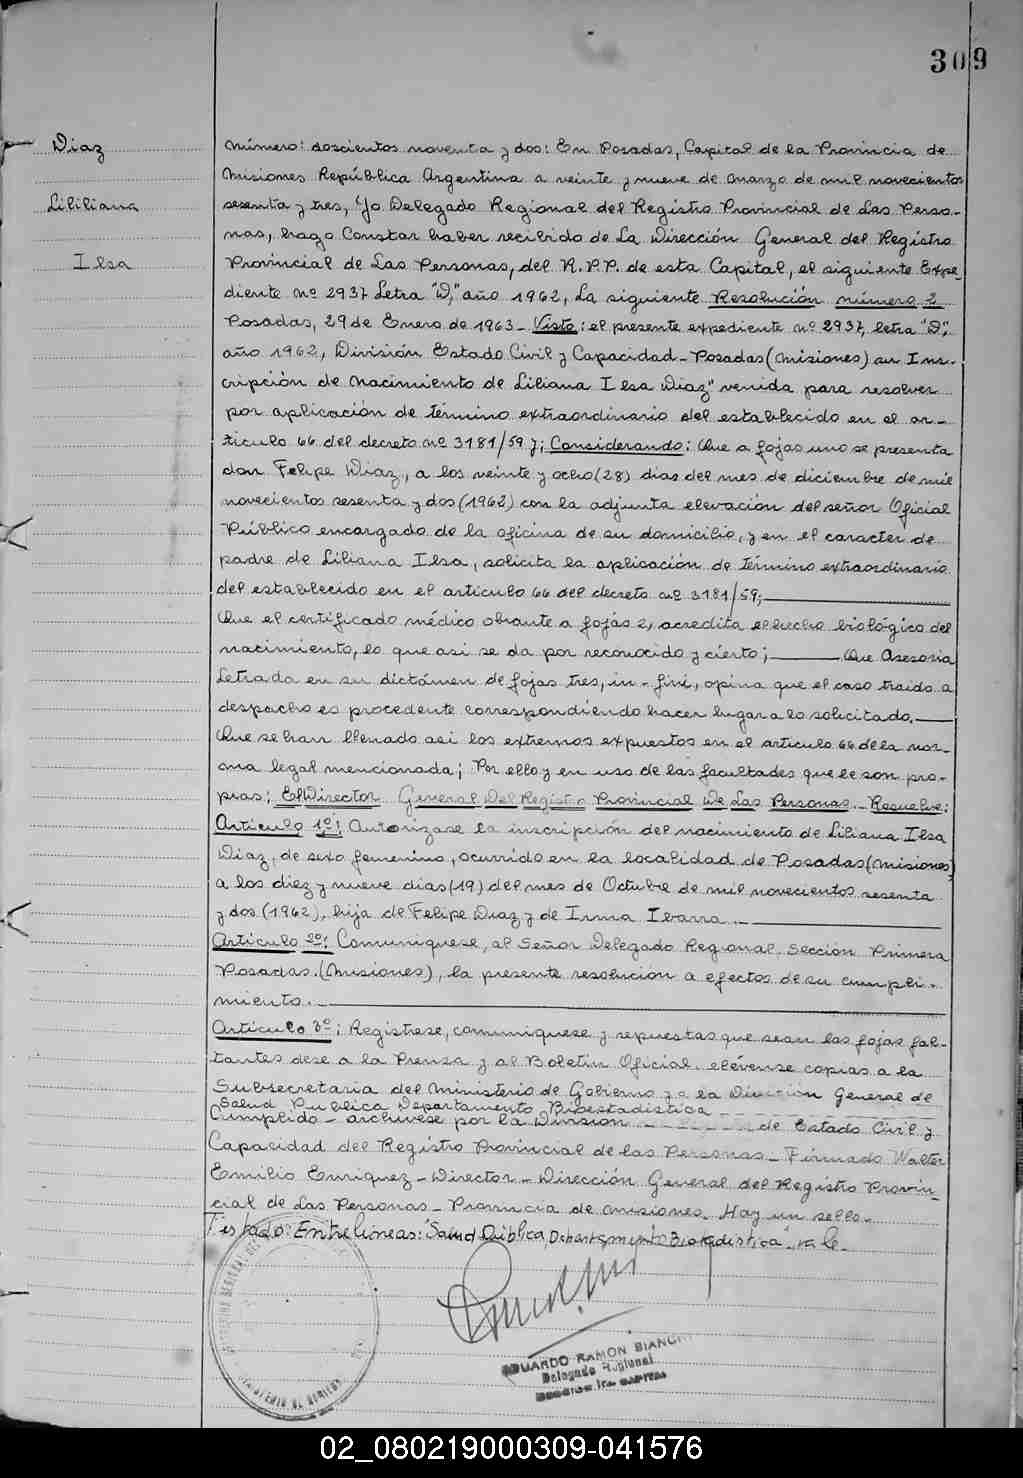 309
Diaz
Lililiana
Ilsa
Número: doscientos noventa y dos: En Posadas, Capital de la Provincia de
Misiones República Argentina a veinte y nueve de marzo de mil novecientos
sesenta y tres, Yo Delegado Regional del Registro Provincial de Las Perso-
nas, hago Constar haber recibido de La Dirección General del Registro
Provincial de Las Personas, del R.P.P. de esta Capital, el siguiente Expe-
diente nº 2937 Letra "D," año 1962, La siguiente Resolución número 2
Posadas, 29 de Enero de 1963 - Visto: el presente expediente nº 2937, letra "D",
año 1962, División Estado Civil y Capacidad - Posadas (Misiones) su Ins-
cripción de nacimiento de Liliana Ilsa Diaz" venida para resolver
por aplicación de término extraordinario del establecido en el ar-
tículo 66 del decreto nº 3181/59 y; Considerando: Que a fojas uno se presenta
don Felipe Diaz, a los veinte y ocho (28) dias del mes de diciembre de mil
novecientos sesenta y dos (1962) con la adjunta elevación del señor Oficial
Público encargado de la oficina de su domicilio, y en el caracter de
padre de Liliana Ilsa, solicita la aplicación de término extraordinario
del establecido en el artículo 66 del decreto nº 3181/59;
Que el certificado médico obrante a fojas 2, acredita el hecho biológico del
nacimiento, lo que asi se da por reconocido y cierto; Que Asesoria
Letrada en su dictámen de fojas tres, in-fini, opina que el caso traido a
despacho es procedente correspondiendo hacer lugar a lo solicitado.
Que se han llenado asi los extremos expuestos en el artículo 66 de la nor-
ma legal mencionada; Por ello y en uso de las facultades que le son pro-
pias; El Director General Del Registro Provincial De Las Personas.- Resuelve:
Artículo 1º: Autorizase la inscripción del nacimiento de Liliana Ilsa
Diaz, de sexo femenino, ocurrido en la localidad de Posadas (Misiones)
a los diez y nueve dias (19) del mes de Octubre de mil novecientos sesenta
y dos (1962), hija de Felipe Diaz y de Irma Ibarra.
Artículo 2º: Comuníquese, al Señor Delegado Regional Sección Primera
Posadas. (Misiones), la presente resolución a efectos de su cumpli-
miento.
Artículo 3º: Regístrese, comuníquese y repuestas que sean las fojas fal-
tantes dese a la Prensa y al Boletín Oficial. elévense copias a la
Subsecretaria del Ministerio de Gobierno y a la Dirección General de
Salud Publica Departamento Bioestadistica
Cumplido - archívese por la División de Estado Civil y
Capacidad del Registro Provincial de las Personas - Firmado Walter
Emilio Enriquez - Director - Dirección General del Registro Provin-
cial de Las Personas - Provincia de Misiones. Hay un sello.
Testado: Entrelineas: "Salud Pública Departamento Bioestadistica" vale.
EDUARDO RAMON BIANCHI
Delegado Regional
02_080219000309-041576